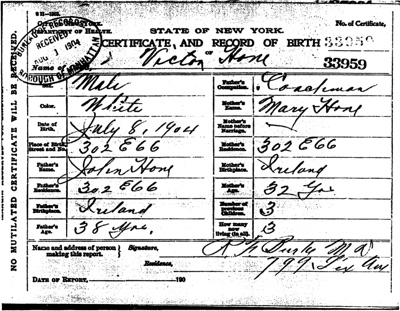 STATE OF NEW YORK.
No. of Certificate,
DEPARTMENT OF HEALTH.
CERTIFICATE, AND RECORD OF BIRTH
33959
OF
Name of Victor Hone
33959
BUREAU RECORDS
RECEIVED
AUG 1 1904
BOROUGH OF MANHATTAN
NO MUTILATED CERTIFICATE WILL BE RECEIVED.
Sex. Male
Father's Occupation. Coachman
Color. White
Mother's Name. Mary Hone
Date of Birth. July 8, 1904
Mother's Name before Marriage. —
Place of Birth, Street and No. 302 E 66
Mother's Residence. 302 E 66
Father's Name. John Hone
Mother's Birthplace. Ireland
Father's Residence. 302 E 66
Mother's Age. 32 Yrs
Father's Birthplace. Ireland
Number of previous Children. 3
Father's Age. 38 Yrs.
How many now living (in all). 3
Name and address of person making this report.
Signature,
Burke M.D.
Residence,
799
DATE OF REPORT, 190